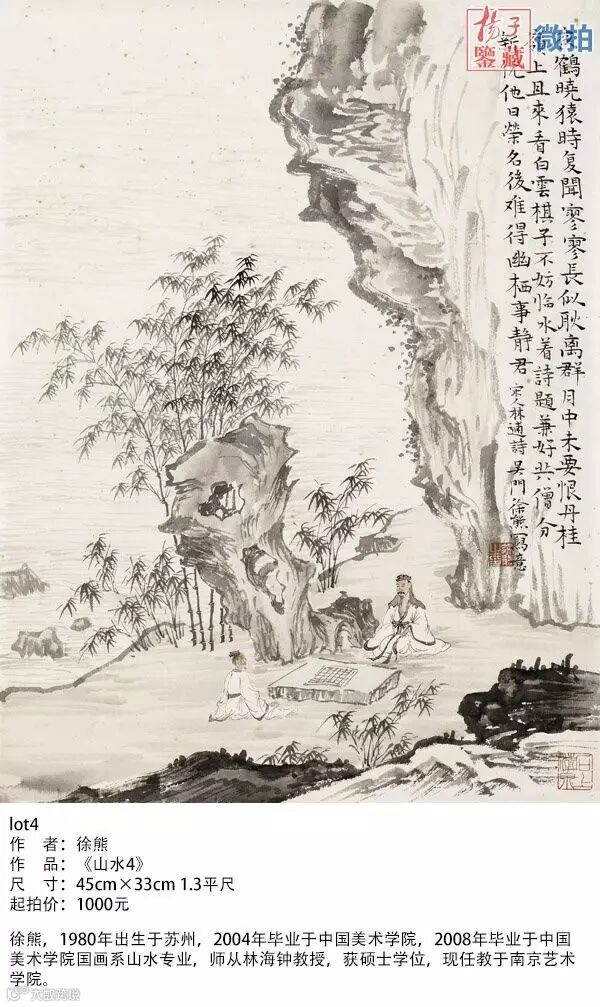 揚子
鑒藏
微拍
鶴曉猿時复聞寥寥長似耿离群月中未要恨丹桂
上且來看白雲棋子不妨临水着詩題兼好共僧分
新他日榮名後难得幽栖事静君 宋人林逋詩 吴門徐熊寫意
lot4
作 者：徐熊
作 品：《山水4》
尺 寸：45cm×33cm 1.3平尺
起拍价：1000元
徐熊，1980年出生于苏州，2004年毕业于中国美术学院，2008年毕业于中国
美术学院国画系山水专业，师从林海钟教授，获硕士学位，现任教于南京艺术
学院。